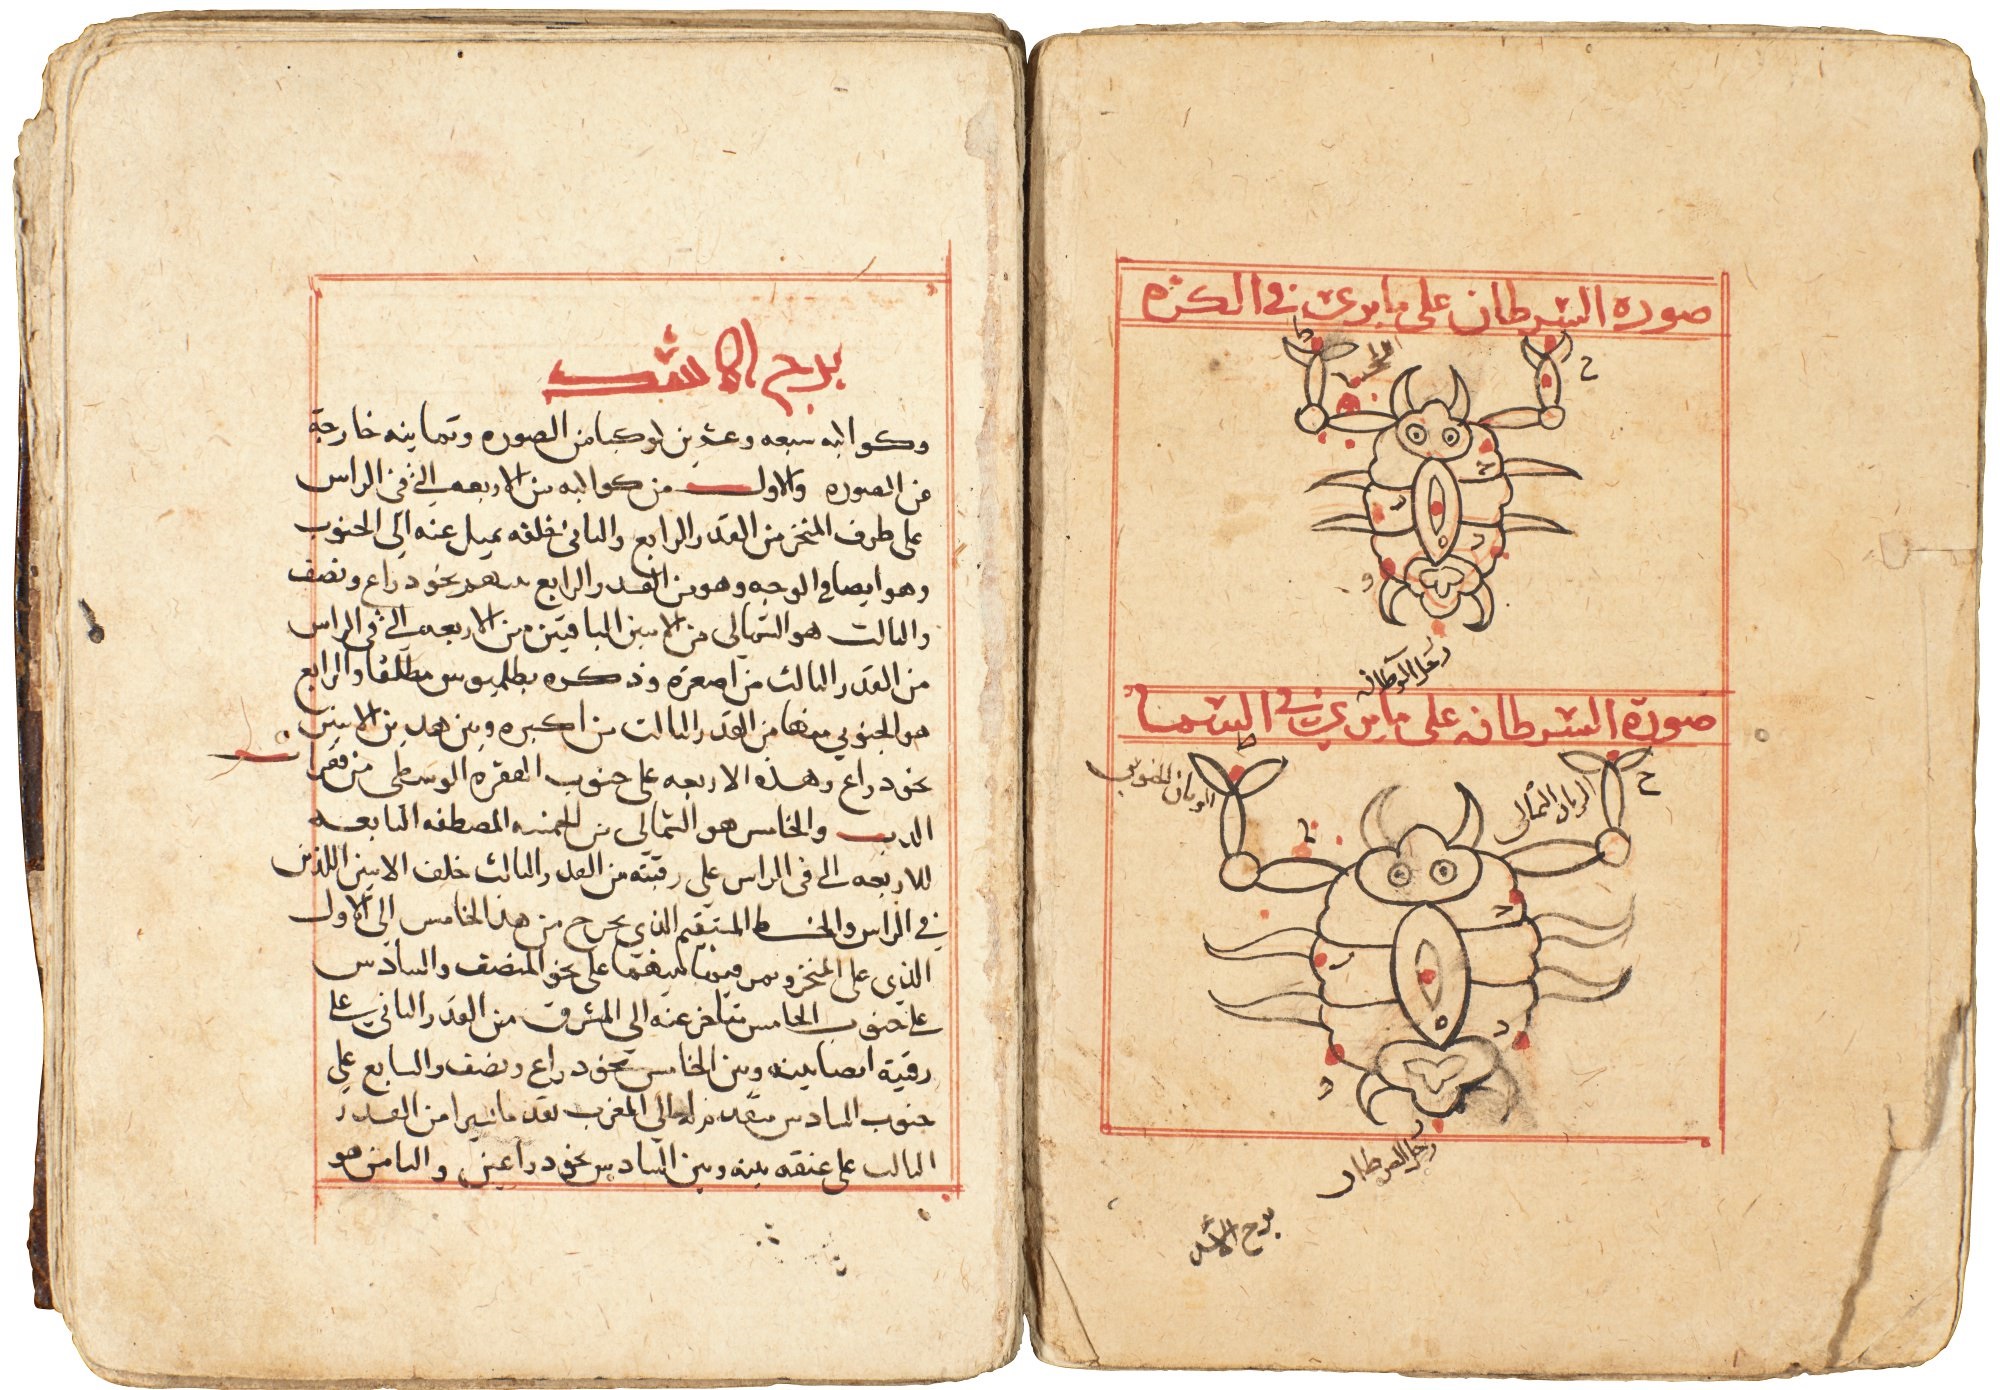 صورة السرطان على ما يرى في الكره
ط
ح
د
و
رجل السرطان
صورة السرطان على ما يرى في السما
ط
الزبان الجنوبي
الزبان الشمالي
ح
د
و
رجل السرطان
برج الاسد
برج الاسد
وكواكبه سبعه وعشرين كوكبا من الصوره وثمانيه خارجة
عن الصوره والاول من كواكبه من الاربعه التي في الراس
على طرف المنخر من القدر الرابع والثاني خلفه يميل عنه الى الجنوب
وهو ايضا في الوجه وهو من القدر الرابع بينهم نحو ذراع ونصف
والثالث هو الشمالي من الاثنين الباقيين من الاربعه التي في الراس
من القدر الثالث من اصغره وذكره بطلميوس مطلقا والرابع
هو الجنوبي منهما من القدر الثالث من اكبره وبين هذين الاثنين
نحو ذراع وهذه الاربعه على جنوب الفقره الوسطى من فقرا
الدب والخامس هو الشمالي من الخمسه المصطفه التابعه
للاربعه التي في الراس على رقبته من القدر الثالث خلف الاثنين اللذين
في الراس والخط المستقيم الذي يخرج من هذا الخامس الى الاول
الذي على المنخر ويمر فيما بينهما على نحو المنصف والسادس
على جنوب الخامس متاخر عنه الى المشرق من القدر الثاني على
رقبة ايضا بينه وبين الخامس نحو ذراع ونصف والسابع على
جنوب السادس الى المغرب من القدر
الثالث على عنقه بينه وبين السادس نحو ذراعين والثامن هو